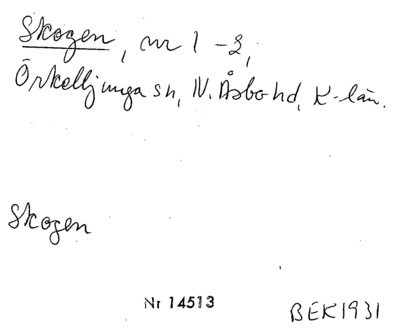 Skogen, nr 1-2,
Örkelljunga sn, N. Åsbo hd, K-län.
Skogen
Nr 14513
BEK1931